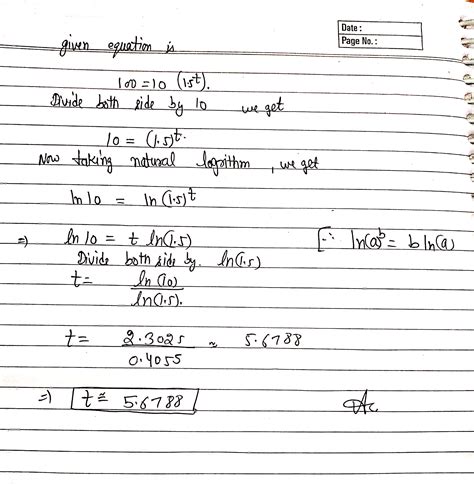 Date :
Page No. :
given equation is
100 = 10 (1.5^t).
Divide both side by 10 we get
10 = (1.5)^t.
Now taking natural logrithm, we get
ln 10 = ln (1.5)^t
⇒) ln 10 = t ln(1.5) [∵ ln(a)^b = b ln(a)
Divide both side by. ln(1.5)
t = ln (10) / ln(1.5).
t = 2.3025 / 0.4055 ≈ 5.6788
⇒) t ≅ 5.6788